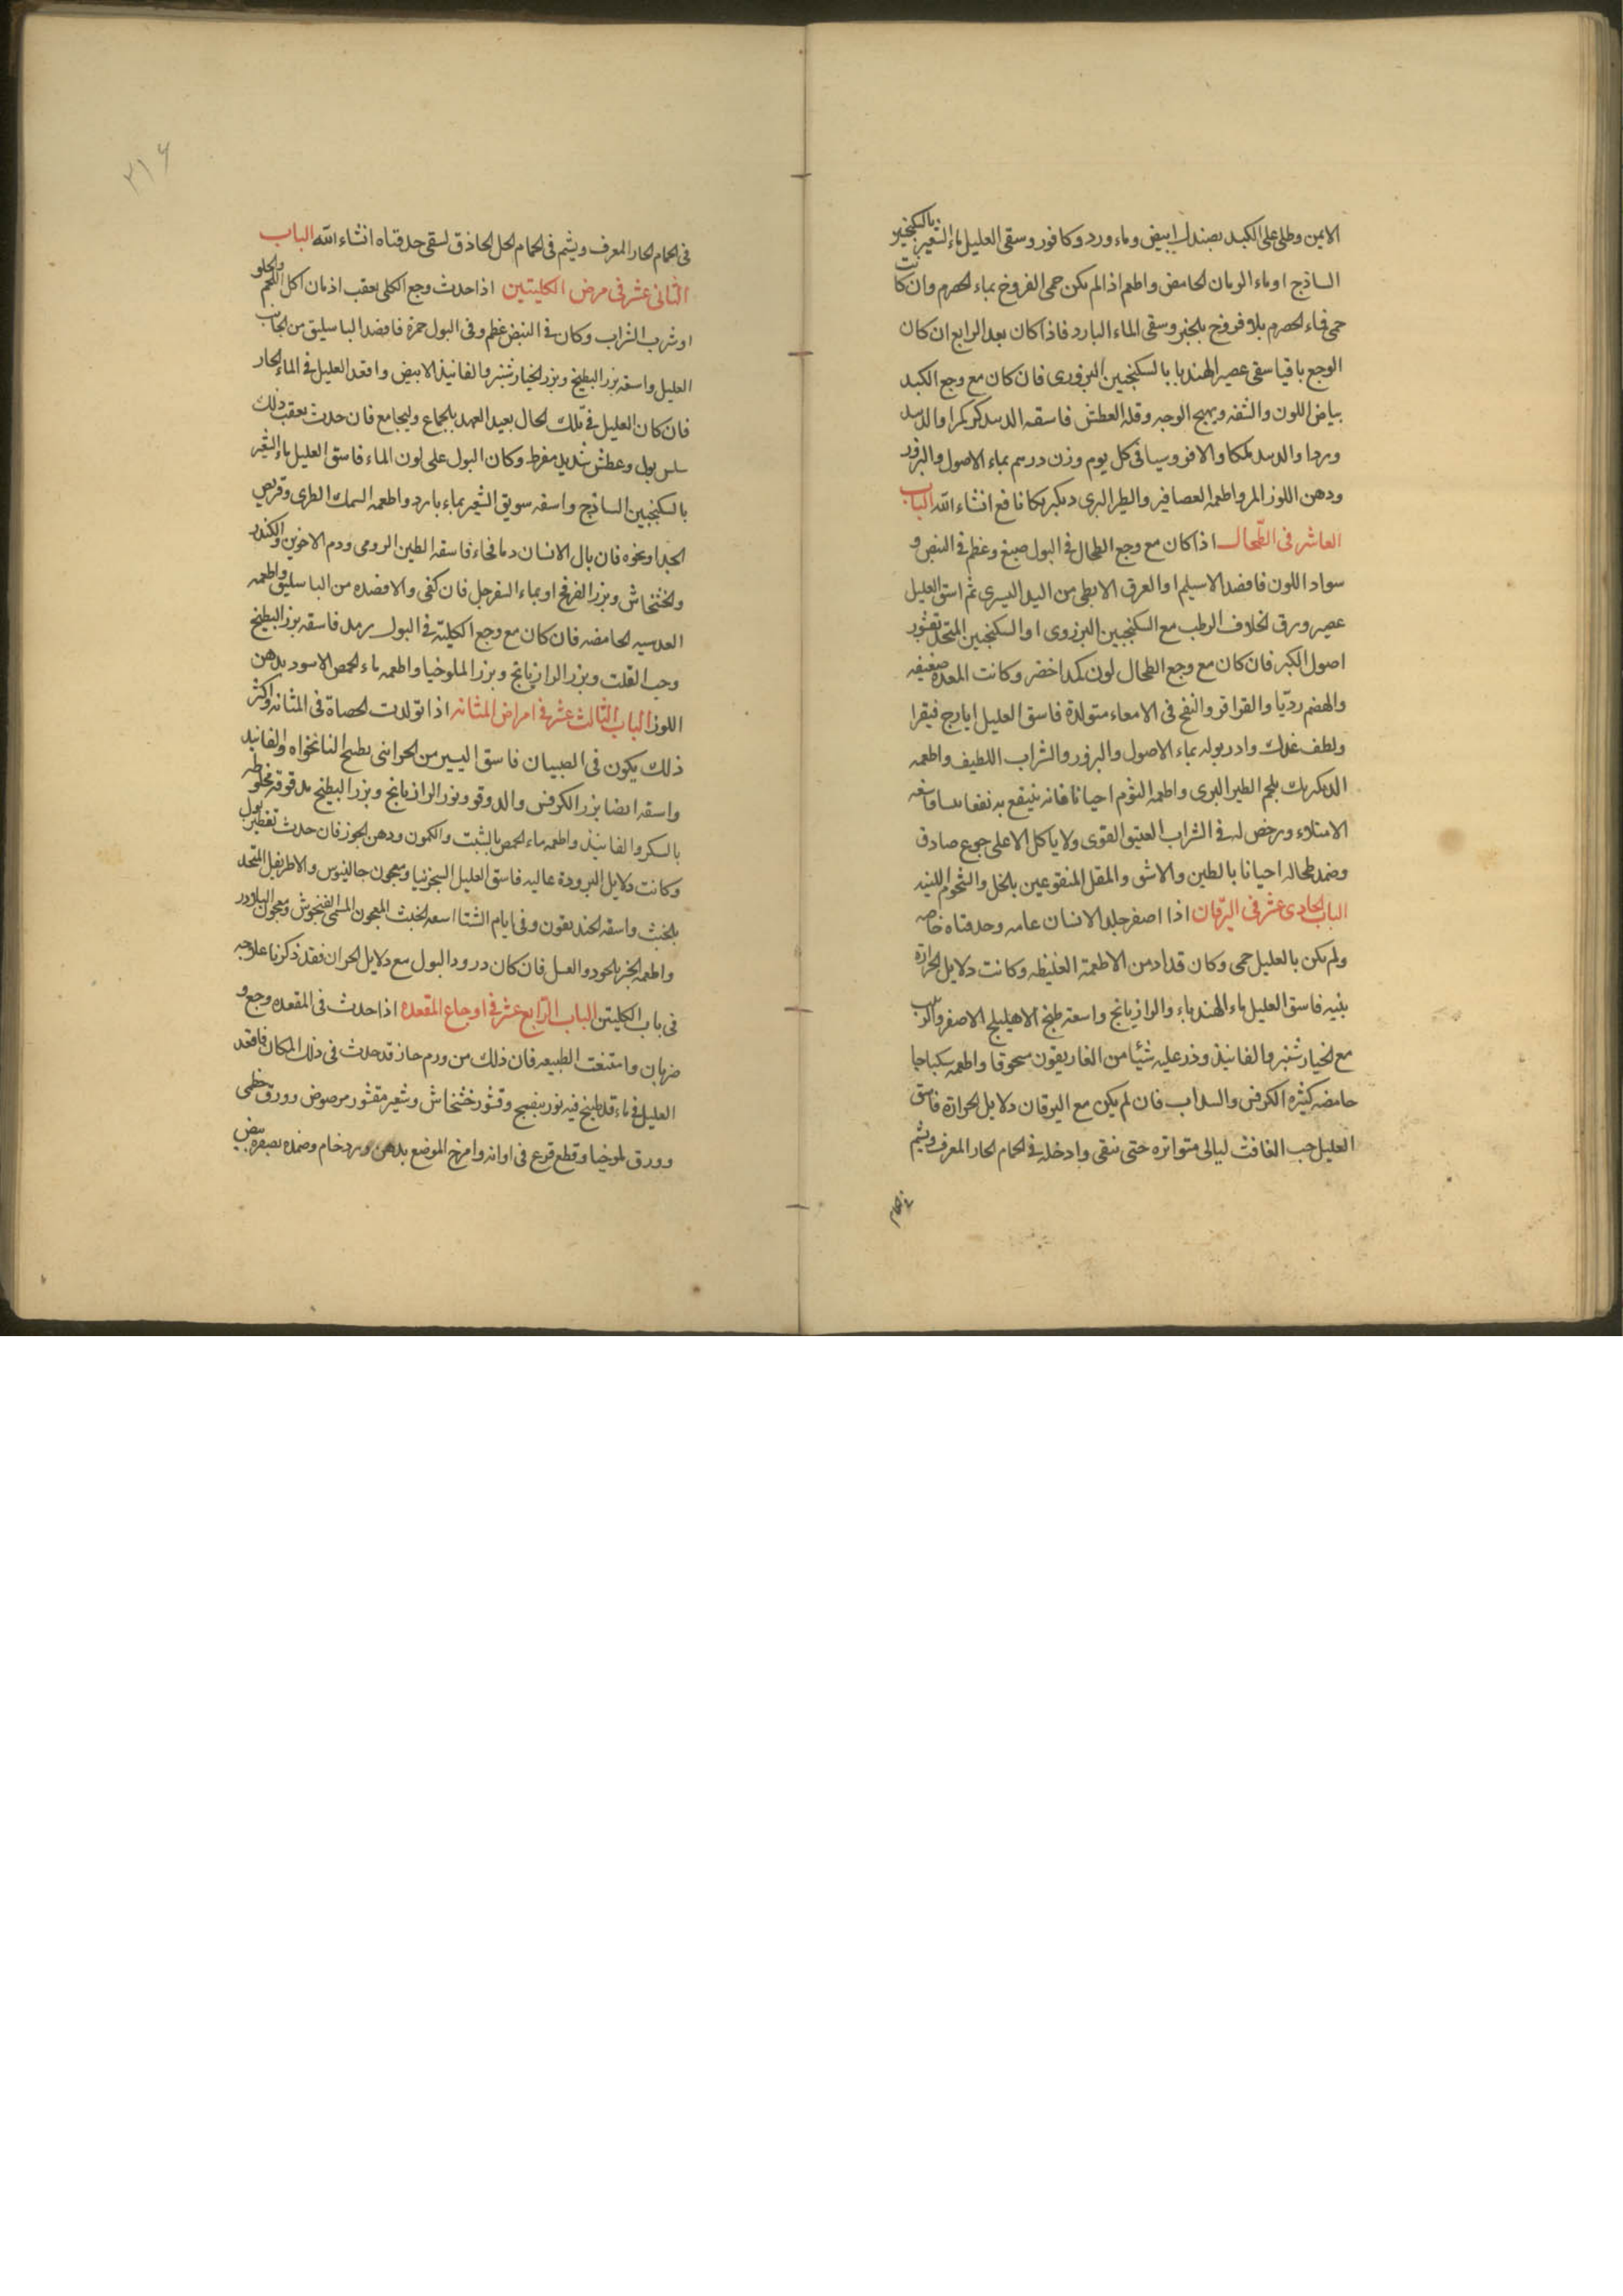 الايمن وطلى على الكبد بصندل ابيض وماء ورد وكافور وسقى العليل ماء الشعير بالسكنجبين
الساذج او ماء الرمان الحامض واطعم اذا لم يكن حمى الفروخ بماء الحصرم وان كانت
حمى فماء الحصرم بلا فروخ بلخبز وسقى الماء البارد فاذا كان بعد الرابع ان كان
الوجع باقيا سقى عصير الهندبا بالسكنجبين البزورى فان كان مع وجع الكبد
بياض اللون والشفه ويهيج الوجه وقله العطش فاسقه
وردا والافروسيا فى كل يوم وزن درهم بماء الاصول والبزور
ودهن اللوز المر واطعمه العصافير والطير البرى نافع انشاء الله الباب
العاشر فى الطحال اذا كان مع وجع الطحال فى البول صبغ وعظم فى النبض و
سواد اللون فافصد الاسيلم او العرق الابطى من اليد اليسرى ثم اسق العليل
عصير ورق الخلاف الرطب مع السكنجبين البزورى او السكنجبين المتخذ بقشور
اصول الكبر فان كان مع وجع الطحال لون كمد اخضر وكانت المعدة ضعيفه
والهضم رديّا والقراقر والنفخ فى الامعاء متولدة فاسق العليل ايارج فيقرا
ولطف غذاك وادر بوله بماء الاصول والبزور والشراب اللطيف واطعمه
بلحم الطير البرى واطعمه الثوم احيانا فانه ينتفع به نفعا
الامتلاء ورخص له فى الشراب العتيق القوى ولا ياكل الا على جوع صادق
وضمد طحاله احيانا بالطين والاشق والمقل المنقوعين بالخل والشحوم اللينه
الباب الحادى عشر فى اليرقان اذا اصفر جلد الانسان عامه وحدقتاه خاصه
ولم يكن بالعليل حمى وكان قد ادمن الاطعمة الغليظه وكانت دلايل الحرارة
بنيه فاسق العليل ماء الهندباء والرازيانج واسقه طبخ الاهليلج الاصفر والزبيب
مع الخيارشنبر والفانيذ وذر عليه شيئا من الغاريقون مسحوقا واطعمه سكباجا
حامضه كثيره الكرفس والسداب فان لم يكن مع اليرقان دلايل الحرارة فاسق
العليل حب الغافث ليالى متواتره حتى ينقى وادخله فى الحمام الحار المعرف ويشم
فى الحمام
٢١۶
فى الحمام الحار المعرف ويشم فى الحمام الخل الحاذق لينقى حدقتاه انشاء الله الباب
الثانى عشر فى مرض الكليتين اذا حدث وجع الكلى بعقب ادمان اكل اللحم والحلو
او شرب الشراب وكان فى النبض عظم وفى البول حمرة فافصد الباسليق من الجانب
العليل واسقه بزر البطيخ وبزر الخيار شنبر والفانيذ الابيض واقعد العليل فى الماء الحار
فان كان العليل فى تلك الحال بعيد العهد بالجماع وليجامع فان حدث بعقب ذلك
سلس بول وعطش شديد مفرط وكان البول على لون الماء فاسق العليل ماء الشعير
بالسكنجبين الساذج واسقه سويق الشعير بماء بارد واطعمه السمك الطرى وقريص
الجدا ونحوه فان بال الانسان دما فجاء فاسقه الطين الرومى ودم الاخوين والكندر
والخشخاش وبزر الفرفخ او بماء السفرجل فان كفى والا فصده من الباسليق واطعمه
العدسيه الحامضه فان كان مع وجع الكلية فى البول رمل فاسقه بزر البطيخ
وحب القلت وبزر الرازيانج وبزر الملوخيا واطعمه ماء الحمص الاسود بدهن
اللوز الباب الثالث عشر فى امراض المثانه اذا تولدت الحصاة فى المثانه واكثر
ذلك يكون فى الصبيان فاسق اليسير من بطبخ النانخواه والفانيذ
واسقه ايضا بزر الكرفس والدوقو وبزر الرازيانج وبزر البطيخ مدقوقة مخلوطه
بالسكر والفانيذ واطعمه ماء الحمص بالشبت والكمون ودهن الجوز فان حدث تقطير بول
وكانت دلايل البرودة عاليه فاسق العليل السجزنيا ومعجون جالينوس والاطريفل المتخذ
بالخبث واسقه الخنديقون وفى ايام الشتا اسقه الخبث المعجون المسمى الفنجوش ومعجون البلادر
واطعمه الخبز بالجوز والعسل فان كان درور البول مع دلايل الحران فقد ذكرنا علاجه
فى باب الكليتن الباب الرابع عشر فى اوجاع المقعده اذا حدث فى المقعده وجع و
ضربان وامتنعت الطبيعه فان ذلك من ورم حار قد حدث فى ذلك المكان فاقعد
العليل فى ماء قد طبخ فيه نور بنفسج وقشور خشخاش وشعير مقشور مرضوض وورق خطمى
وورق ملوخيا وقطع قرع فى اوانه وامرخ الموضع بدهن ورد خام وضمده بصفره بيض